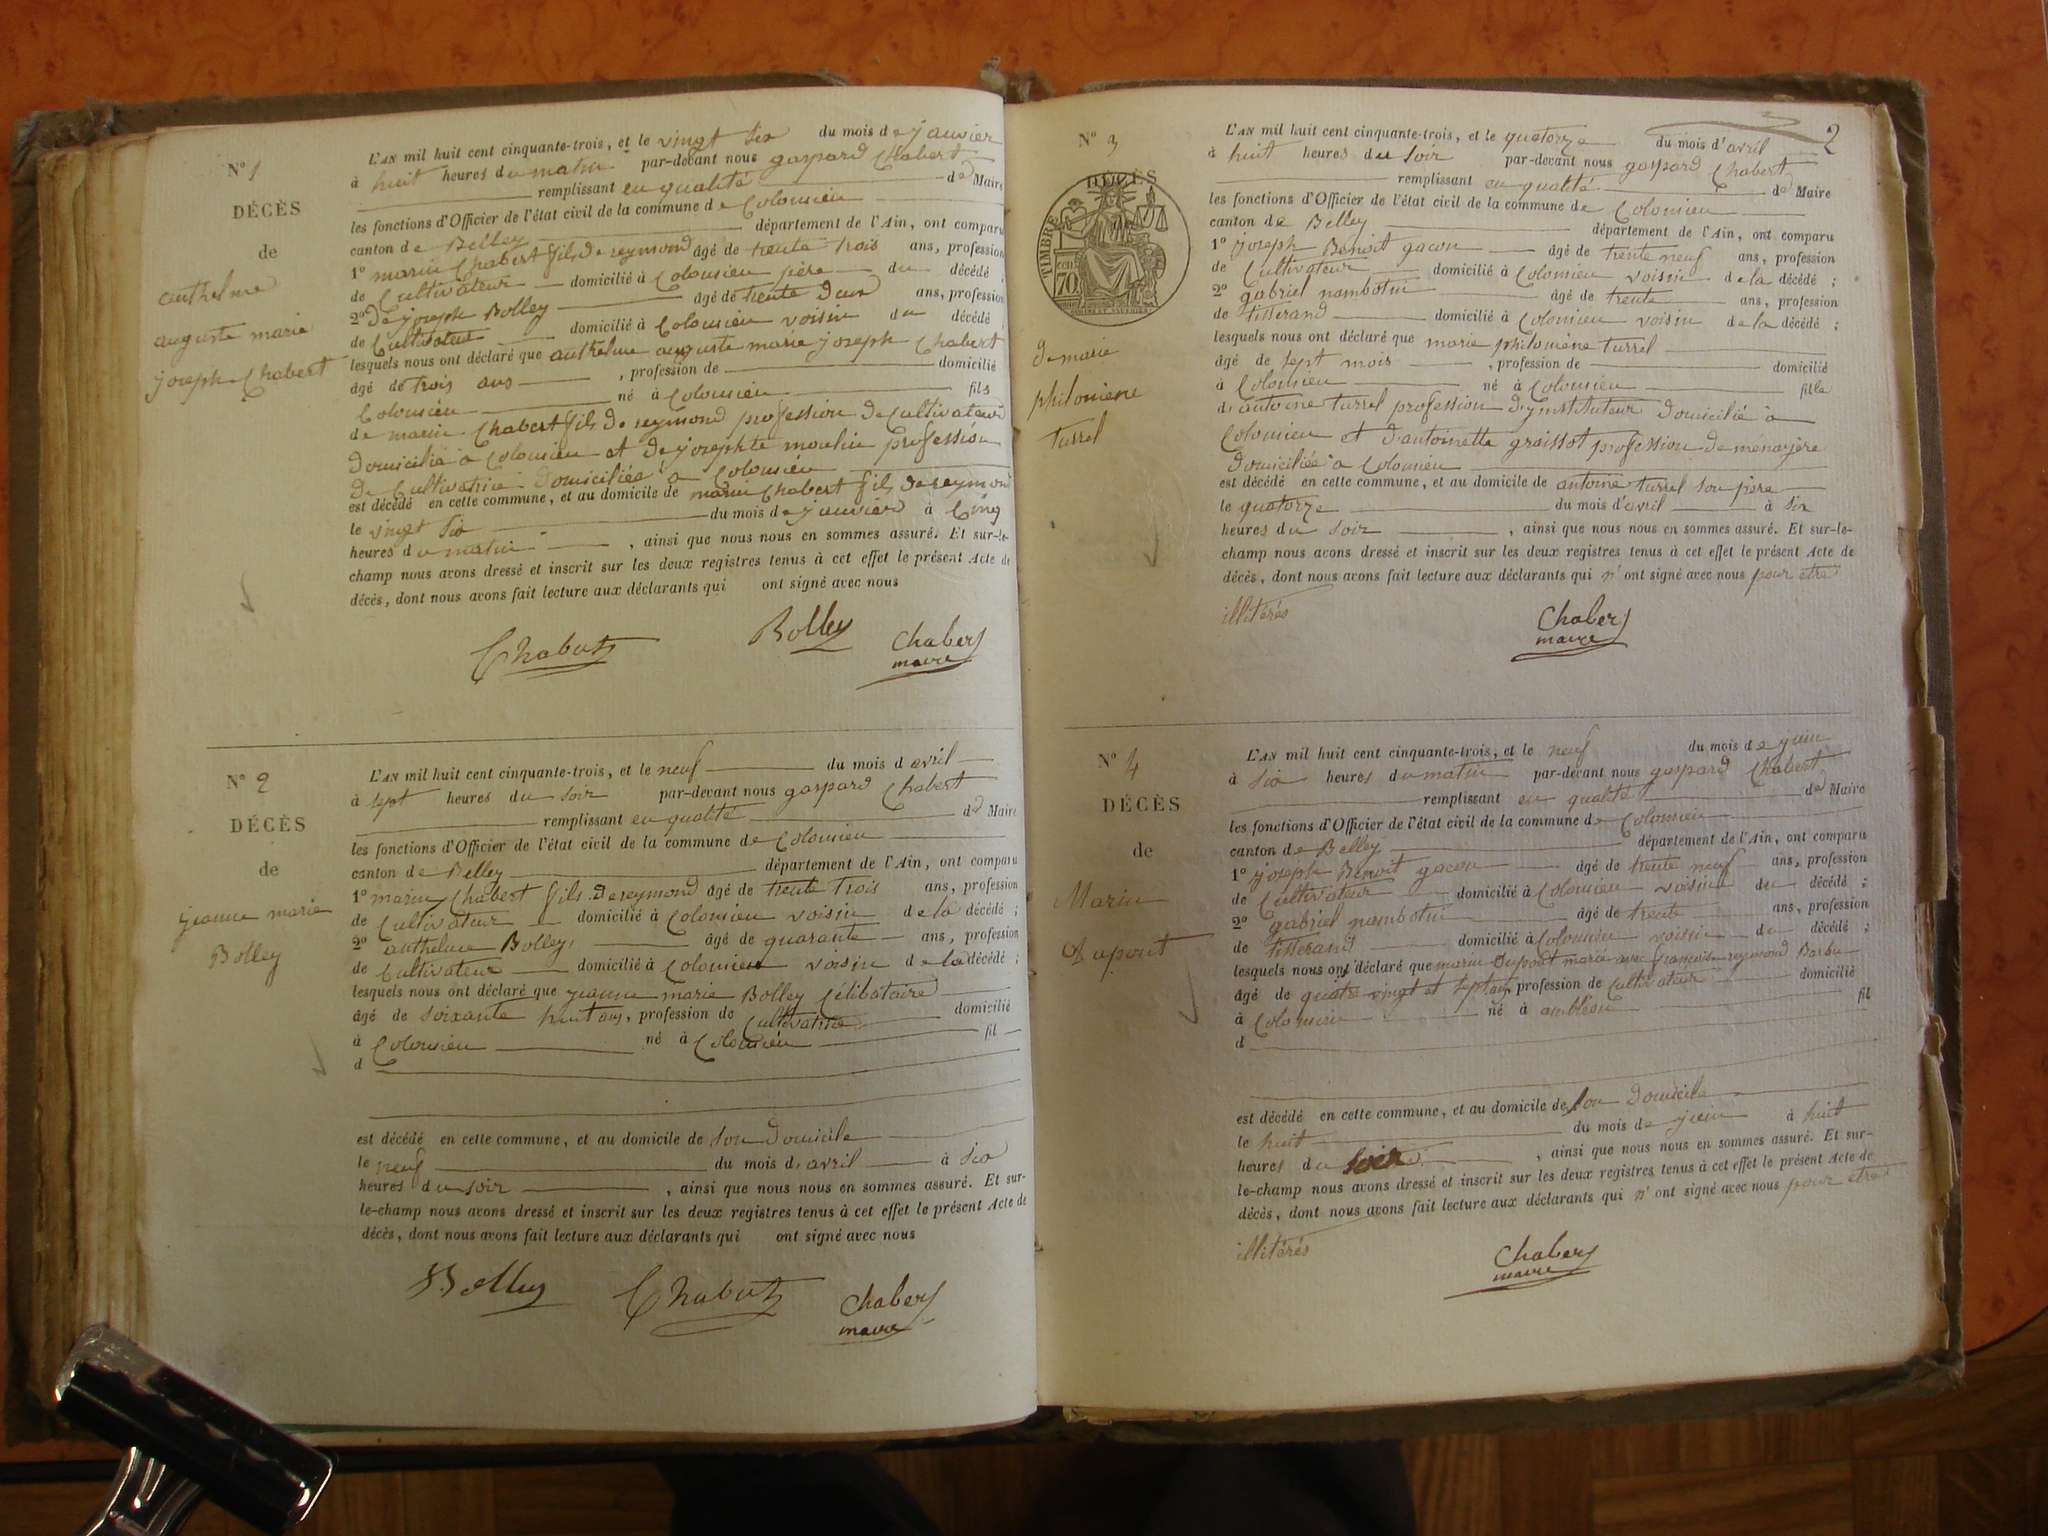 N° 1
DÉCÈS
de
anthelme
auguste marie
joseph Chabert
L'AN mil huit cent cinquante-trois, et le vingt six du mois de janvier
à huit heures du matin par-devant nous gaspard Chabert
remplissant en qualité de Maire
les fonctions d'Officier de l'état civil de la commune de Colomieu
canton de Belley département de l'Ain, ont comparu
1° marin Chabert fils de reymond âgé de trente trois ans, profession
de Cultivateur domicilié à Colomieu père du décédé ;
2° De joseph Bolley âgé de trente deux ans, profession
de Cultivateur domicilié à Colomieu voisin du décédé
lesquels nous ont déclaré que anthelme auguste marie joseph Chabert
âgé de trois ans , profession de domicilié
Colomieu né à Colomieu fils
de marin Chabert fils De reymond profession De Cultivateur
Domicilié à Colomieu et De josephte moulin profession
De Cultivatrice Domiciliée à Colomieu
est décédé en cette commune, et au domicile de marin Chabert fils de reymond
le vingt six du mois de janvier à Cinq
heures du matin , ainsi que nous nous en sommes assuré. Et sur-le-
champ nous avons dressé et inscrit sur les deux registres tenus à cet effet le présent Acte de
décès, dont nous avons fait lecture aux déclarants qui ont signé avec nous
Chabert Bolley Chabert
maire
N° 2
DÉCÈS
de
jeanne marie
Bolley
L'AN mil huit cent cinquante-trois, et le neuf du mois d'avril
à sept heures du soir par-devant nous gaspard Chabert
remplissant en qualité de Maire
les fonctions d'Officier de l'état civil de la commune de Colomieu
canton de Belley département de l'Ain, ont comparu
1° marin Chabert fils De reymond âgé de trente trois ans, profession
de Cultivateur domicilié à Colomieu voisin de la décédé ;
2° anthelme Bolley âgé de quarante ans, profession
de Cultivateur domicilié à Colomieu voisin de la décédé ;
lesquels nous ont déclaré que jeanne marie Bolley Célibataire
âgé de soixante huit ans, profession de Cultivatrice domicilié
à Colomieu né à Colomieu fil
d
est décédé en cette commune, et au domicile de son Domicile
le neuf du mois d'avril à six
heures du soir , ainsi que nous nous en sommes assuré. Et sur-
le-champ nous avons dressé et inscrit sur les deux registres tenus à cet effet le présent Acte de
décès, dont nous avons fait lecture aux déclarants qui ont signé avec nous
Bolley Chabert Chabert
maire
2
N° 3
DÉCÈS
TIMBRE
70
De marie
philomène
turrel
L'AN mil huit cent cinquante-trois, et le quatorze du mois d'avril
à huit heures du soir par-devant nous gaspard Chabert
remplissant en qualité de Maire
les fonctions d'Officier de l'état civil de la commune de Colomieu
canton de Belley département de l'Ain, ont comparu
1° joseph Benoit gacon âgé de trente neuf ans, profession
de Cultivateur domicilié à Colomieu voisin de la décédé ;
2° gabriel nambotin âgé de trente ans, profession
de tisserand domicilié à Colomieu voisin de la décédé ;
lesquels nous ont déclaré que marie philomène turrel
âgé de sept mois , profession de domicilié
à Colomieu né à Colomieu fille
d'antoine turrel profession D'ynstituteur Domicilié à
Colomieu et D'antoinette graissot profession De ménagère
Domiciliée à Colomieu
est décédé en cette commune, et au domicile de antoine turrel son père
le quatorze du mois d'avril à six
heures du soir , ainsi que nous nous en sommes assuré. Et sur-le-
champ nous avons dressé et inscrit sur les deux registres tenus à cet effet le présent Acte de
décès, dont nous avons fait lecture aux déclarants qui n'ont signé avec nous pour être
illitérés
Chabert
maire
N° 4
DÉCÈS
de
Marin
Dupont
L'AN mil huit cent cinquante-trois, et le neuf du mois de juin
à six heures du matin par-devant nous gaspard Chabert
remplissant en qualité de Maire
les fonctions d'Officier de l'état civil de la commune de Colomieu
canton de Belley département de l'Ain, ont comparu
1° joseph Benoit gacon âgé de trente neuf ans, profession
de Cultivateur domicilié à Colomieu voisin du décédé ;
2° gabriel nambotin âgé de trente ans, profession
de tisserand domicilié à Colomieu voisin du décédé ;
lesquels nous ont déclaré que marin Dupont marié avec françoise reymond Barbu
âgé de quatre vingt et sept ans, profession de Cultivateur domicilié
à Colomieu né à ambléon fil
d
est décédé en cette commune, et au domicile de son Domicile
le huit du mois de juin à huit
heures du soir , ainsi que nous nous en sommes assuré. Et sur-
le-champ nous avons dressé et inscrit sur les deux registres tenus à cet effet le présent Acte de
décès, dont nous avons fait lecture aux déclarants qui n'ont signé avec nous pour être
illitérés
Chabert
maire